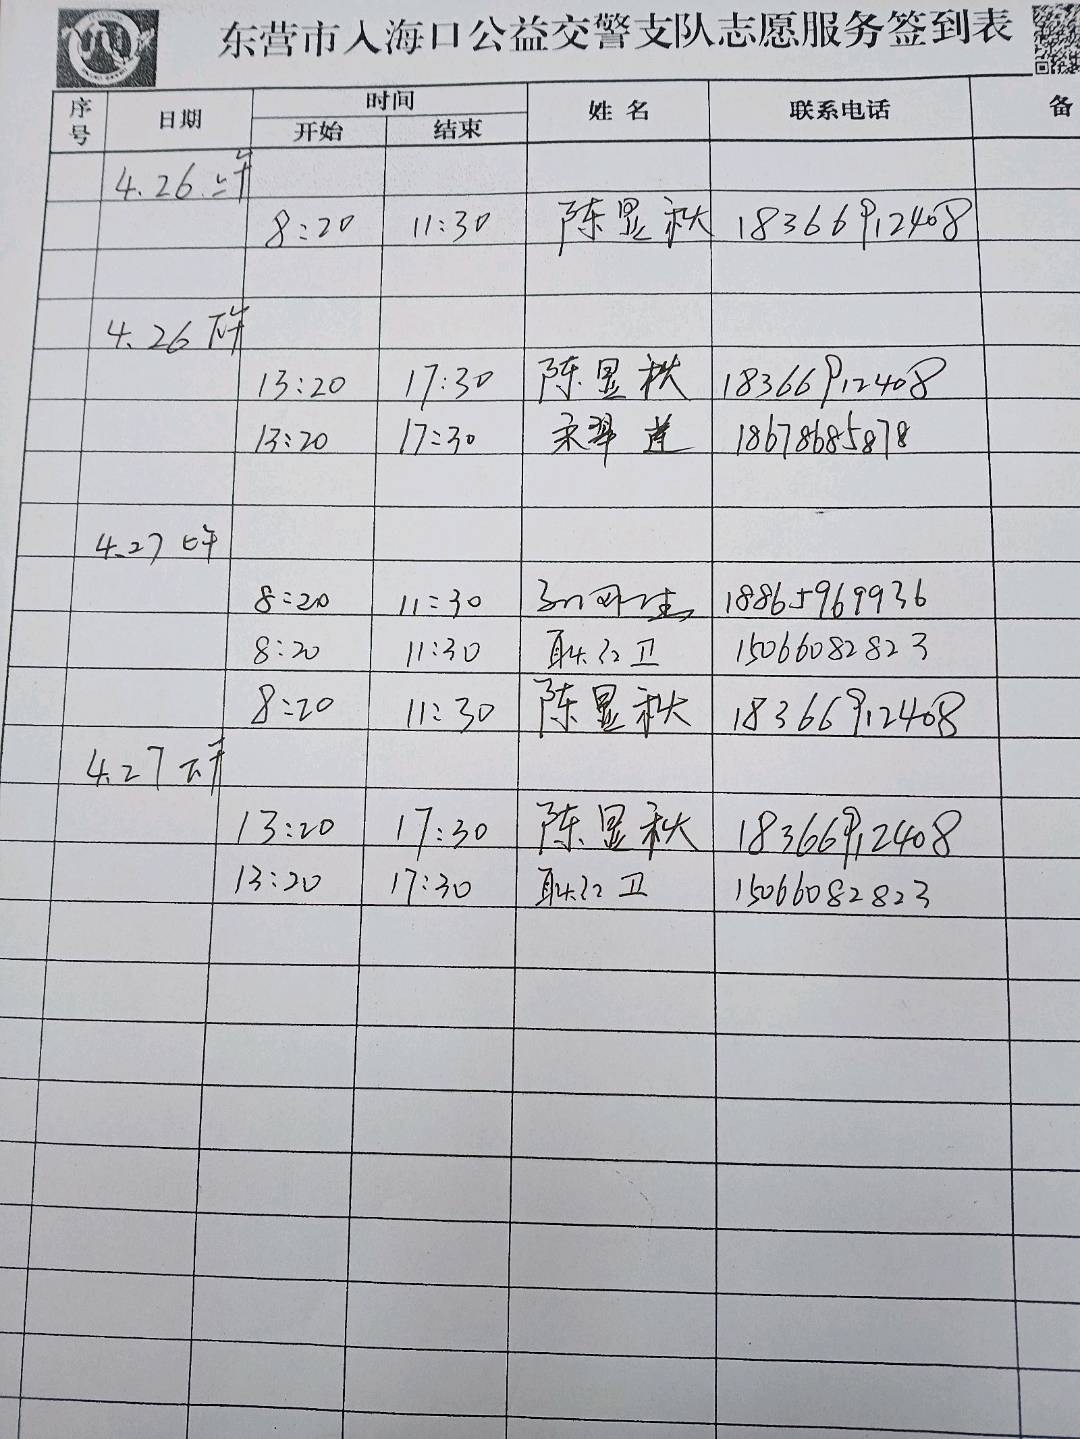 东营市入海口公益交警支队志愿服务签到表
序号 日期 时间 开始 结束 姓名 联系电话 备
4.26 上午
8:20 11:30 陈显秋 18366912408
4.26 下午
13:20 17:30 陈显秋 18366912408
13:20 17:30 宋翠莲 18678685878
4.27 上午
8:20 11:30 18865969936
8:20 11:30 耿红卫 15066082823
8:20 11:30 陈显秋 18366912408
4.27 下午
13:20 17:30 陈显秋 18366912408
13:20 17:30 耿红卫 15066082823